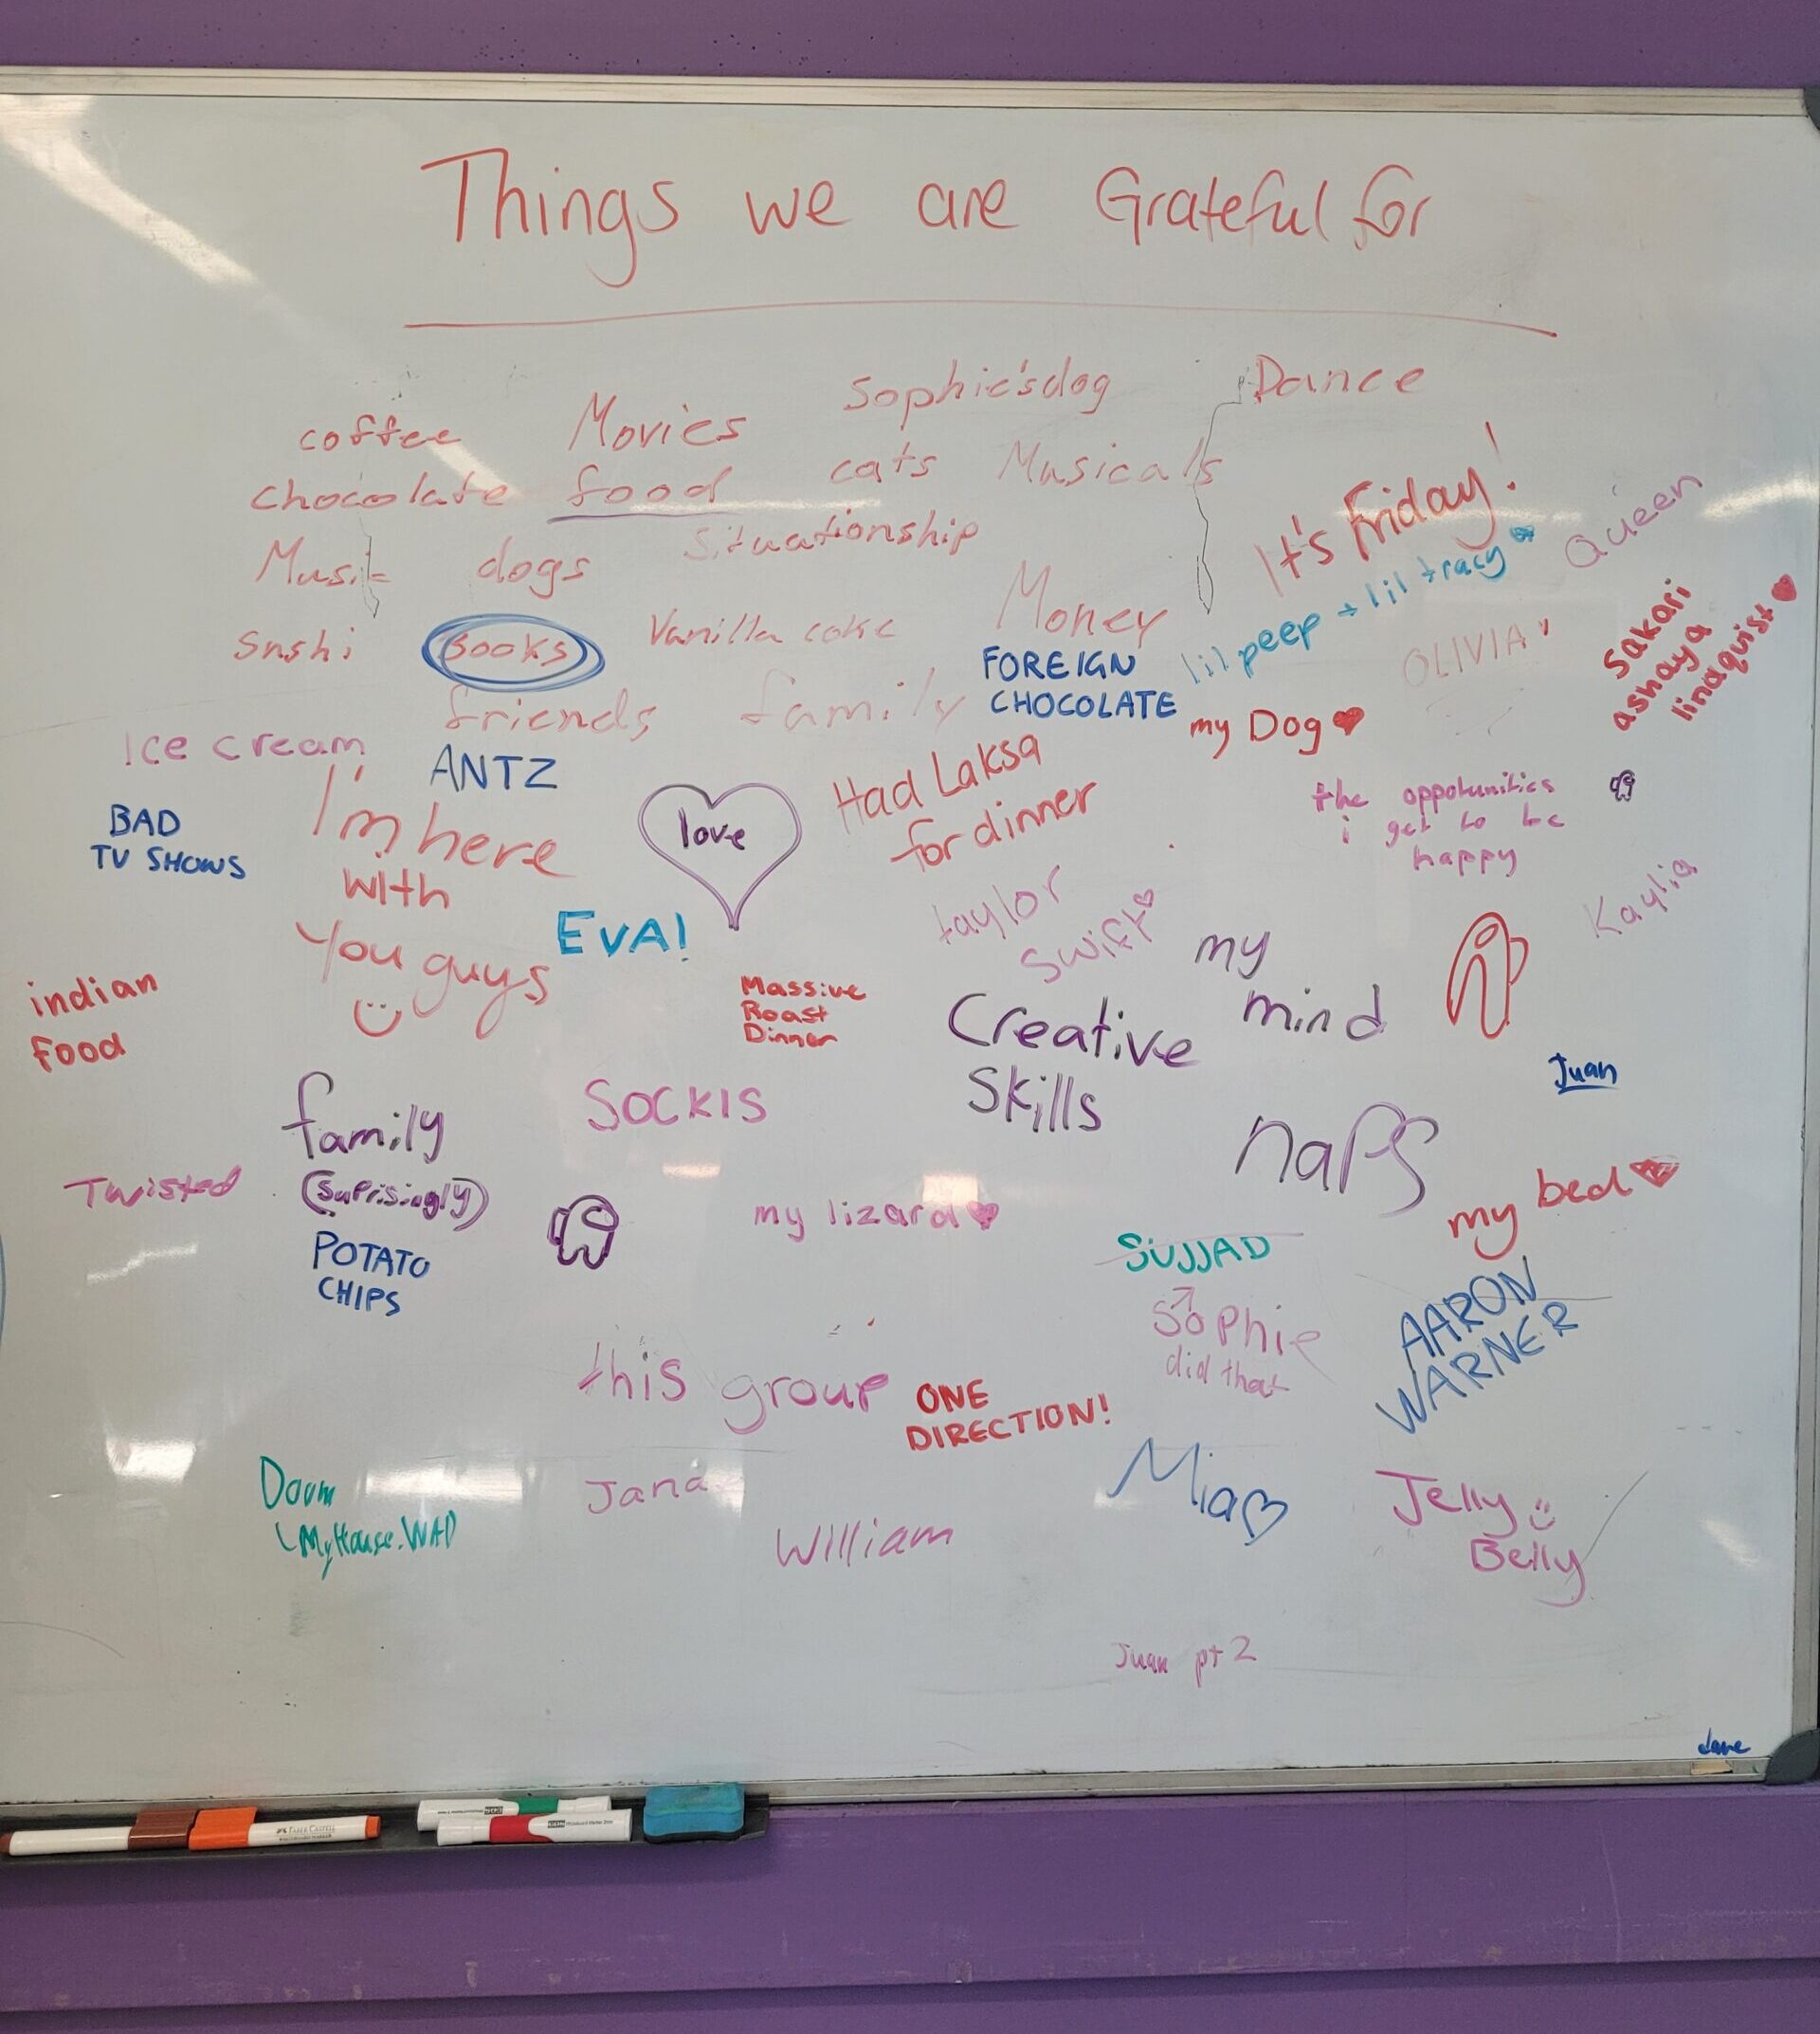 Things we are Grateful for
Sophie's dog
Dance
coffee
Movies
cats
Musicals
chocolate
food
It's Friday!
Queen
Situationship
Music
dogs
lil peep + lil tracy
Money
Sushi
books
Vanilla coke
OLIVIA
Sakari
ashaya
lindquist
FOREIGN
CHOCOLATE
friends
family
my Dog
Ice cream
ANTZ
Had Laksa
for dinner
the oppotunities
i get to be
happy
BAD
TV SHOWS
I'm here
with
You guys
love
EVA!
taylor
swift
Kaylia
my
mind
indian
food
Massive
Roast
Dinner
Creative
Skills
Juan
family
(suprisingly)
SOCKIS
naps
Twisted
my lizard
my bed
POTATO
CHIPS
SUJJAD
Sophie
did that
AARON
WARNER
this group
ONE
DIRECTION!
Doom
MyHouse.WAD
Jana
William
Mia
Jelly
Belly
Juan pt 2
FABER-CASTELL